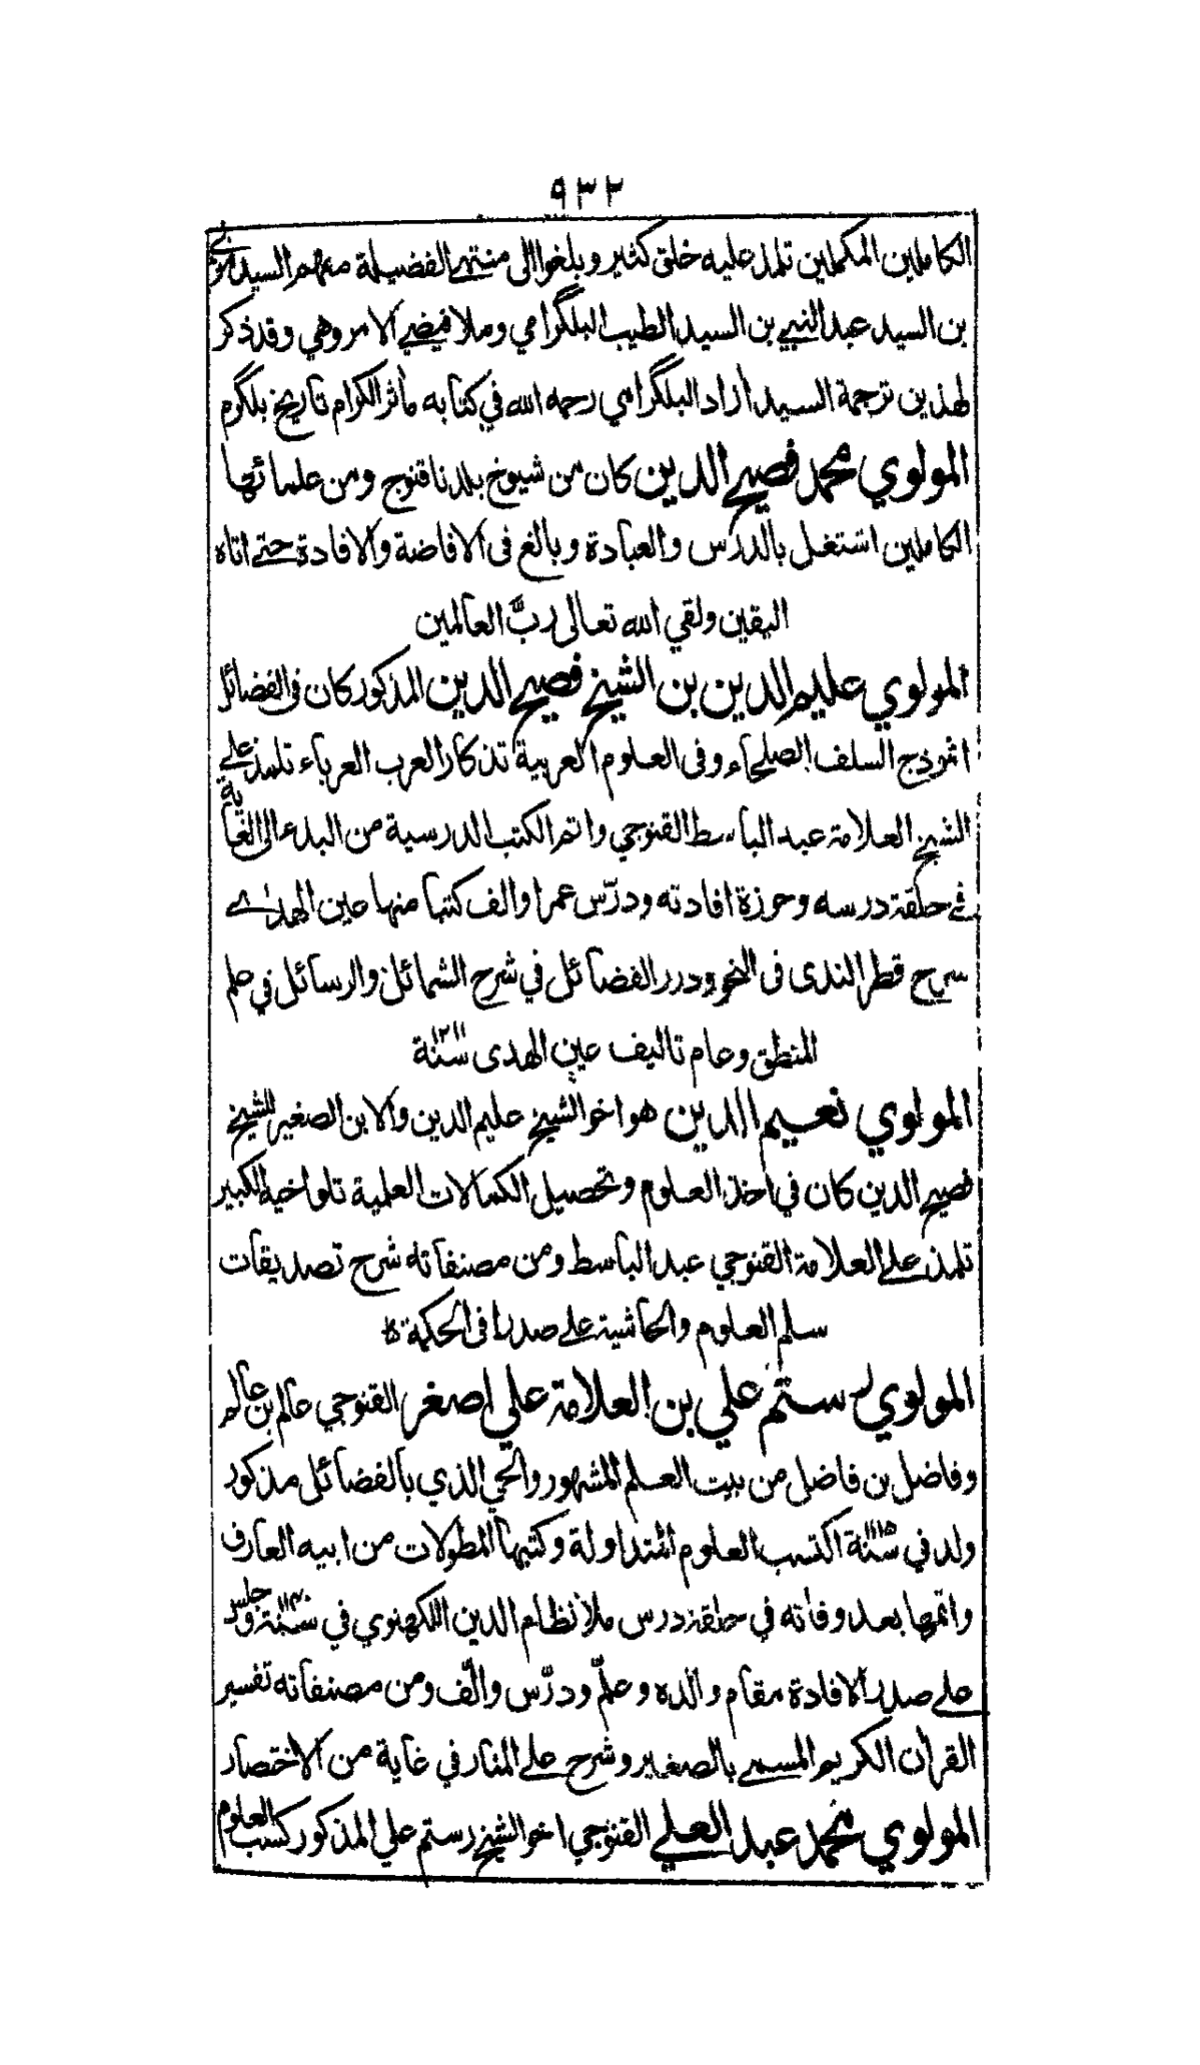 ٩٣٢
الكاملين المكملين تلمذ عليه خلق كثير وبلغوا الى منتهى الفضيلة منهم السيد
بن السيد عبد النبي بن السيد الطيب البلگرامي وملا فيضي الامروهي وقد ذكر
لهذين ترجمة السيد أزاد البلگرامي رحمه الله في كتابه مأثر الكرام تاريخ بلگرم
المولوي محمد فصيح الدين كان من شيوخ بلدنا قنوج ومن علمائها
الكاملين اشتغل بالدرس والعبادة وبالغ فى الافاضة والافادة حتى اتاه
اليقين ولقي الله تعالى ربّ العالمين
المولوي عليم الدين بن الشيخ فصيح الدين المذكور كان فى الفضائل
انموذج السلف الصلحاء وفى العلوم العربية تذكار العرب العرباء تلمذ على
الشيخ العلامة عبد الباسط القنوجي واتم الكتب الدرسية من البدء الى الغاية
في حلقة درسه وحوزة افادته ودرّس عمرا والف كتبا منها عين الهدى
شرح قطر الندى فى النحو ودرر الفضائل في شرح الشمائل والرسائل في علم
المنطق وعام تاليف عين الهدى سنة ١٢١١
المولوي نعيم الدين هو اخو الشيخ عليم الدين والابن الصغير للشيخ
فصيح الدين كان في اخذ العلوم وتحصيل الكمالات العلمية تلو اخيه الكبير
تلمذ على العلامة القنوجي عبد الباسط ومن مصنفاته شرح تصديقات
سلم العلوم والحاشية على صدرا فى الحكمة ه
المولوي رستم علي بن العلامة علي اصغر القنوجي عالم بن عالم
وفاضل بن فاضل من بيت العلم المشهور والحي الذي بالفضائل مذكور
ولد في سنة ١١١٥ اكتسب العلوم المتداولة وكتبها المطولات من ابيه العارف
واتمها بعد وفاته في حلقة درس ملا نظام الدين اللكهنوي في سنة ١١٤٠ وجلس
على صدر الافادة مقام والده وعلّم ودرّس والّف ومن مصنفاته تفسير
القرأن الكريم المسمى بالصغير وشرح على المنار في غاية من الاختصار
المولوي محمد عبد العلي القنوجي اخو الشيخ رستم علي المذكور كسب العلوم